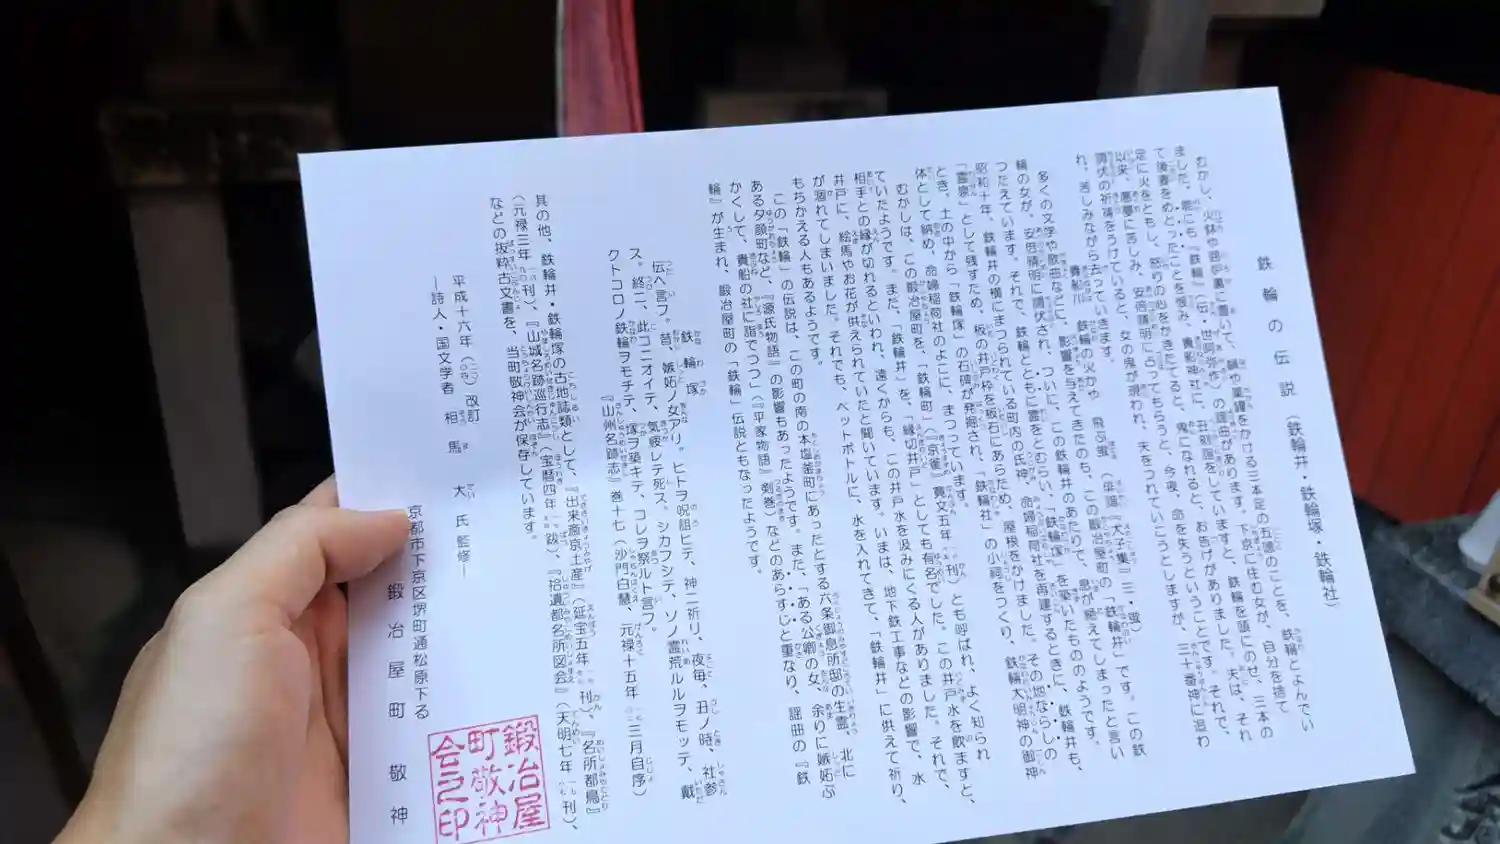 鉄輪の伝説（鉄輪井・鉄輪塚・鉄輪社）
むかし、火鉢や囲炉裏に置いて、鍋や薬罐をかける三本足の五徳のことを、鉄輪とよんでい
ました。能にも『鉄輪』（伝・世阿弥作）の謡曲があります。下京に住む女が、自分を捨て
て後妻をめとったことを恨み、貴船神社に、丑刻詣をしていますと、鉄輪を頭にのせ、三本の
足に火をともし、怒りの心をかきたてると、鬼になれると、お告げがありました。夫は、それ
以来、悪夢に苦しみ、安倍晴明に占ってもらうと、今夜、命を失うということです。それで、
調伏の祈祷をうけていると、女の鬼が現われ、夫をつれていこうとしますが、三十番神に追わ
れ、苦しみながら去っていきます。
貴船川 鉄輪の火かや 飛ぶ蛍
多くの文学や歌曲などに、影響を与えてきたのも、この鍛冶屋町の「鉄輪井」です。この鉄
輪の女が、安倍晴明に調伏され、ついに、この鉄輪井のあたりで、息が絶えてしまったと言い
つたえています。それで、鉄輪とともに霊をとむらい、「鉄輪塚」を築いたもののようです。
昭和十年、鉄輪井の横にまつられている町内の氏神、命婦稲荷社を再建するときに、鉄輪井も、
「霊泉」として残すため、板の井戸枠を板石にあらため、屋根をかけました。その地ならしの
とき、土の中から「鉄輪塚」の石碑が発掘され、「鉄輪社」の小祠をつくり、鉄輪大明神の御神
体として納め、命婦稲荷社のよこに、まつっています。
むかしは、この鍛冶屋町を、「鉄輪町」（『京雀』寛文五年刊）とも呼ばれ、よく知られ
ていたようです。また、「鉄輪井」を、「縁切井戸」としても有名でした。この井戸水を飲ますと、
相手との縁が切れるといわれ、遠くからも、この井戸水を汲みにくる人がありました。それで、
井戸に、絵馬やお花が供えられていたと聞いています。いまは、地下鉄工事などの影響で、水
が涸れてしまいました。それでも、ペットボトルに、水を入れてきて、「鉄輪井」に供えて祈り、
もちかえる人もあるようです。
この「鉄輪」の伝説は、この町の南の本塩釜町にあったとする六条御息所邸の生霊、北に
ある夕顔町など、『源氏物語』の影響もあったようです。また、「ある公卿の女、余りに嫉妬ふ
かくして、貴船の社に詣でつつ」（『平家物語』剣巻）などのあらすじと重なり、謡曲の『鉄
輪』が生まれ、鍛冶屋町の「鉄輪」伝説ともなったようです。
鉄輪塚
伝へ言フ。昔、嫉妬ノ女アリ。ヒトヲ呪詛ヒテ、神ニ祈リ、夜毎、丑ノ時、社参
ス。終ニ、此コニオイテ、気疲レテ死ス。シカフシテ、ソノ霊荒ルルヲモッテ、戴
クトコロノ鉄輪ヲモチテ、塚ヲ築キテ、コレヲ祭ルト言フ。
『山州名跡志』巻十七（沙門白慧、元禄十五年三月自序）
其の他、鉄輪井・鉄輪塚の古地誌類として、『出来斎京土産』（延宝五年刊）、『名所都鳥』
（元禄三年刊）、『山城名跡巡行志』（宝暦四年跋）、『拾遺都名所図会』（天明七年刊）、
などの抜粋古文書を、当町敬神会が保存しています。
平成十六年（二〇〇四）改訂
―詩人・国文学者 相馬 大氏監修―
京都市下京区堺町通松原下る
鍛冶屋町敬神
鍛冶屋
町敬神
会之印